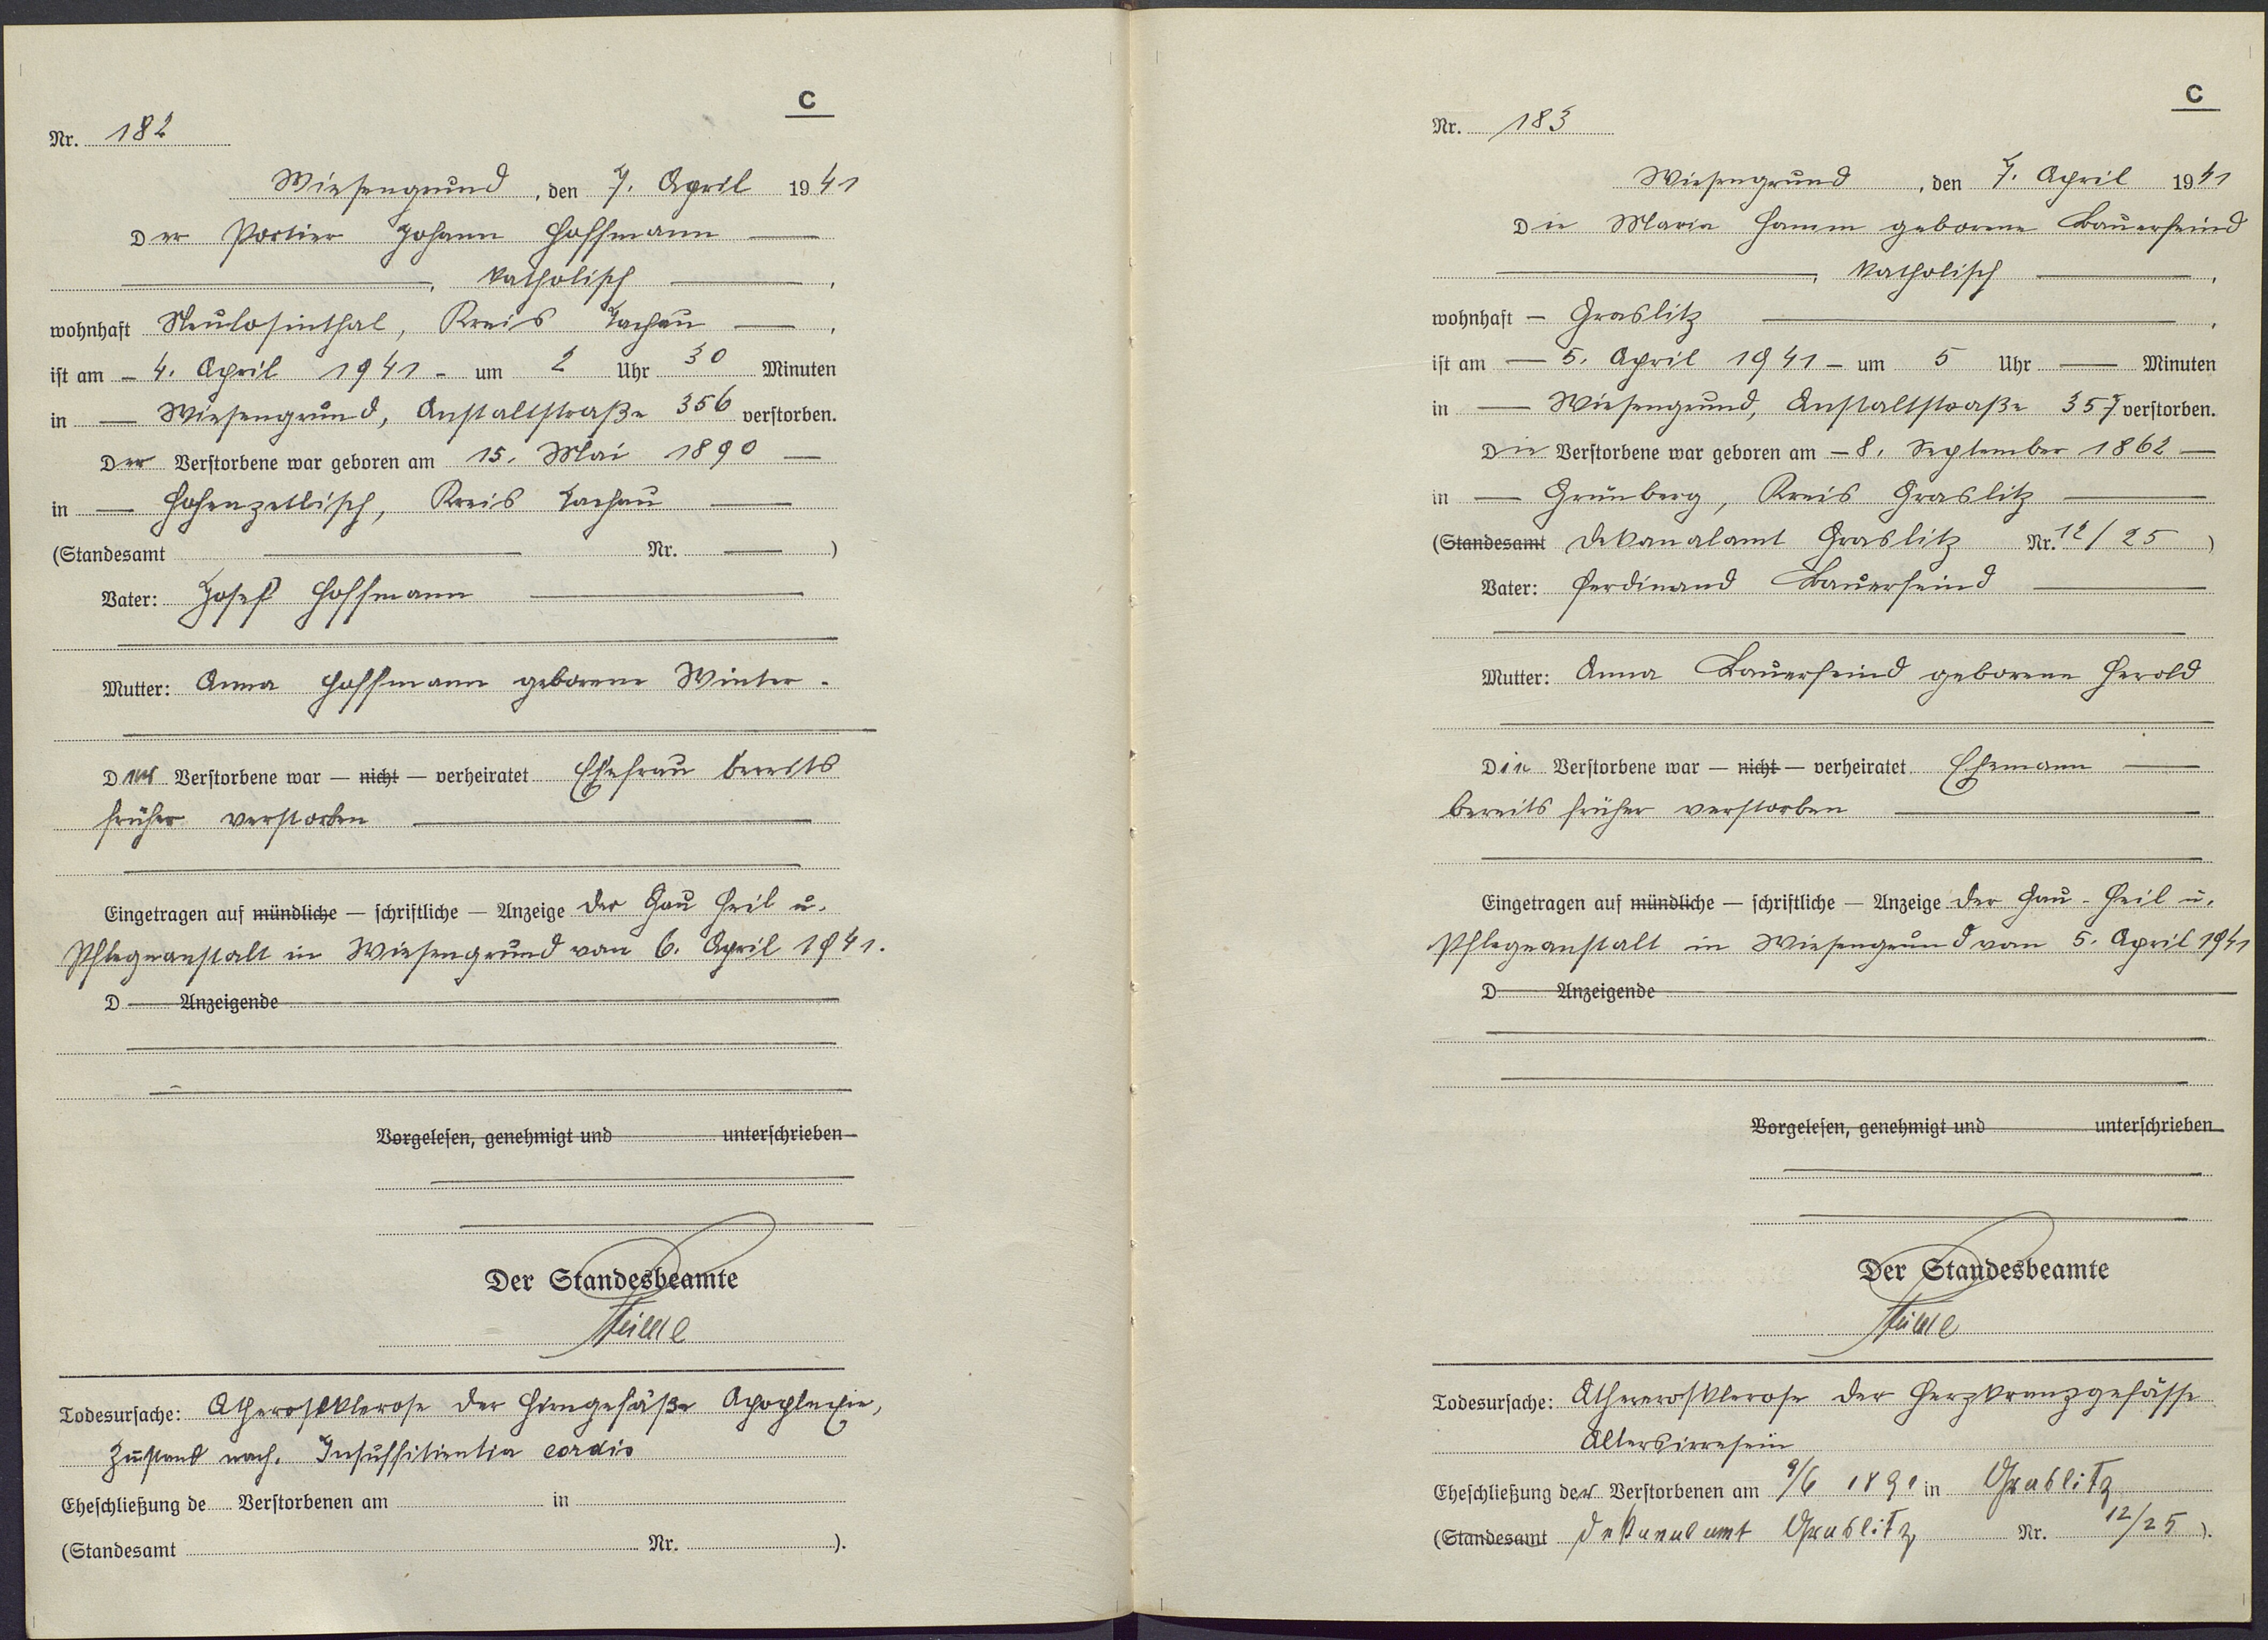 C
Nr. 182
Wiesengrund, den 7. April 1941
Der Portier Johann Hoffmann
, katholisch ,
wohnhaft Neulosinthal, Kreis Tachau ,
ist am 4. April 1941 um 2 Uhr 30 Minuten
in Wiesengrund, Anstaltstraße 356 verstorben.
Der Verstorbene war geboren am 15. Mai 1890
in Hohenzetlisch, Kreis Tachau
(Standesamt Nr. )
Vater: Josef Hoffmann
Mutter: Anna Hoffmann geborene Winter.
Der Verstorbene war — nicht — verheiratet Ehefrau bereits
früher verstorben
Eingetragen auf mündliche — schriftliche — Anzeige der Gau Heil u.
Pflegeanstalt in Wiesengrund vom 6. April 1941.
D Anzeigende
Vorgelesen, genehmigt und unterschrieben
Der Standesbeamte
Todesursache: Atherosklerose der Hirngefäße Apoplexie,
Zustand nach. Insuffitientia cordis
Eheschließung de Verstorbenen am in
(Standesamt Nr. ).
C
Nr. 183
Wiesengrund, den 7. April 1941
Die Maria Hamm geborene Bauerfeind
, katholisch ,
wohnhaft Graslitz ,
ist am 5. April 1941 um 5 Uhr Minuten
in Wiesengrund, Anstaltstraße 357 verstorben.
Die Verstorbene war geboren am 8. September 1862
in Grünberg, Kreis Graslitz
(Standesamt Dekanalamt Graslitz Nr. 12/25 )
Vater: Ferdinand Bauerfeind
Mutter: Anna Bauerfeind geborene Herold
Die Verstorbene war — nicht — verheiratet Ehemann
bereits früher verstorben
Eingetragen auf mündliche — schriftliche — Anzeige der Gau-Heil u.
Pflegeanstalt in Wiesengrund vom 5. April 1941
D Anzeigende
Vorgelesen, genehmigt und unterschrieben
Der Standesbeamte
Todesursache: Athererosklerose der Herzkranzgefässe
Altersirresein
Eheschließung der Verstorbenen am 9/6 1891 in Graslitz
(Standesamt Dekanalamt Graslitz Nr. 12/25 ).